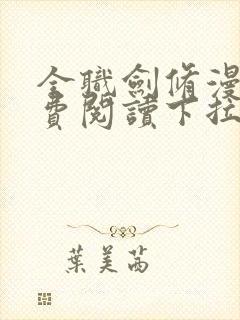 全職劍脩漫
費閱讀下拉
葉美茜